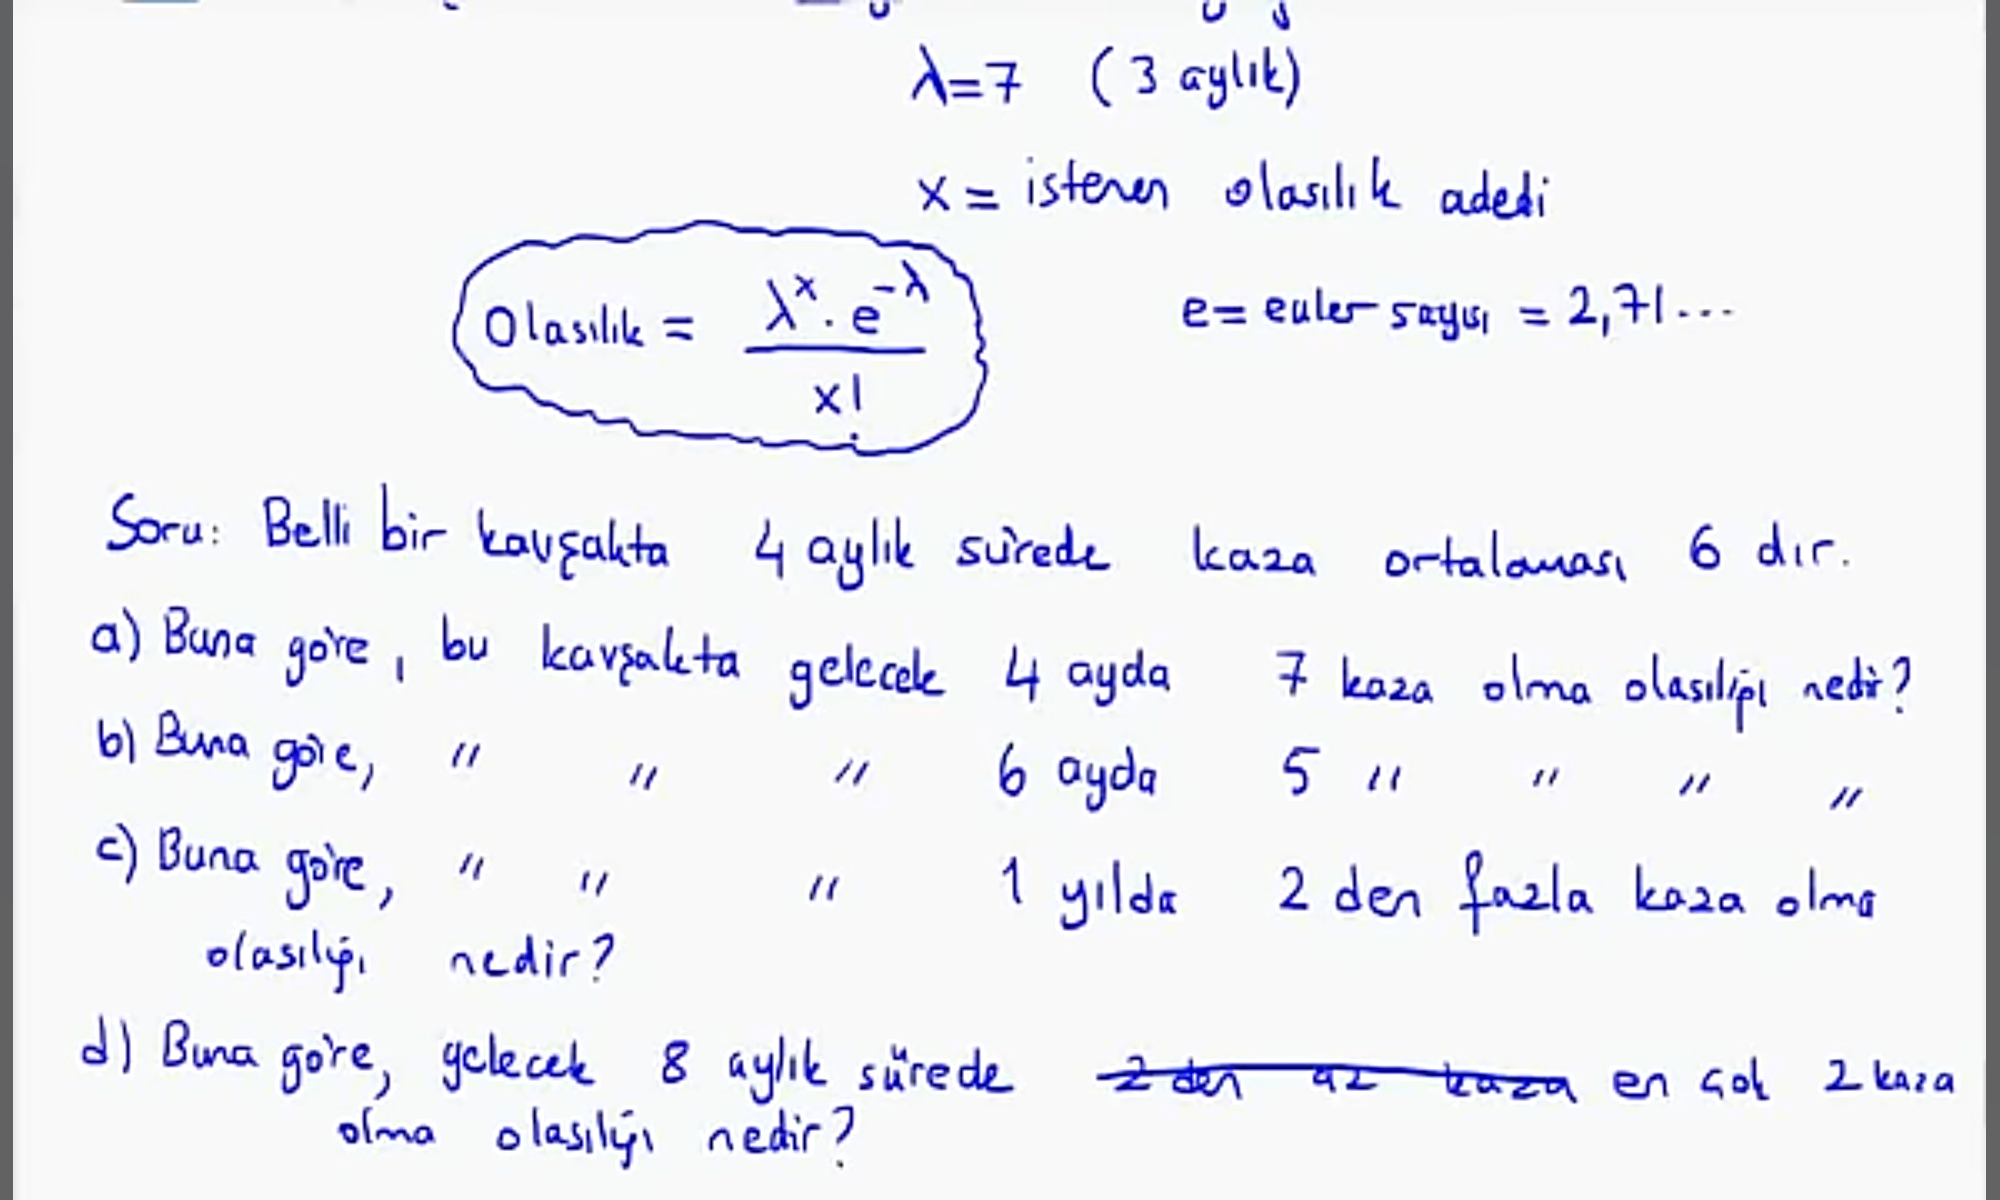 λ=7 (3 aylık)
x = istenen olasılık adedi
Olasılık = λˣ · e⁻λ / x!
e = euler sayısı = 2,71...
Soru: Belli bir kavşakta 4 aylık sürede kaza ortalaması 6 dır.
a) Buna göre, bu kavşakta gelecek 4 ayda 7 kaza olma olasılığı nedir?
b) Buna göre, " " " 6 ayda 5 " " " "
c) Buna göre, " " " 1 yılda 2 den fazla kaza olma
olasılığı nedir?
d) Buna göre, gelecek 8 aylık sürede 2 den az kaza en çok 2 kaza
olma olasılığı nedir?